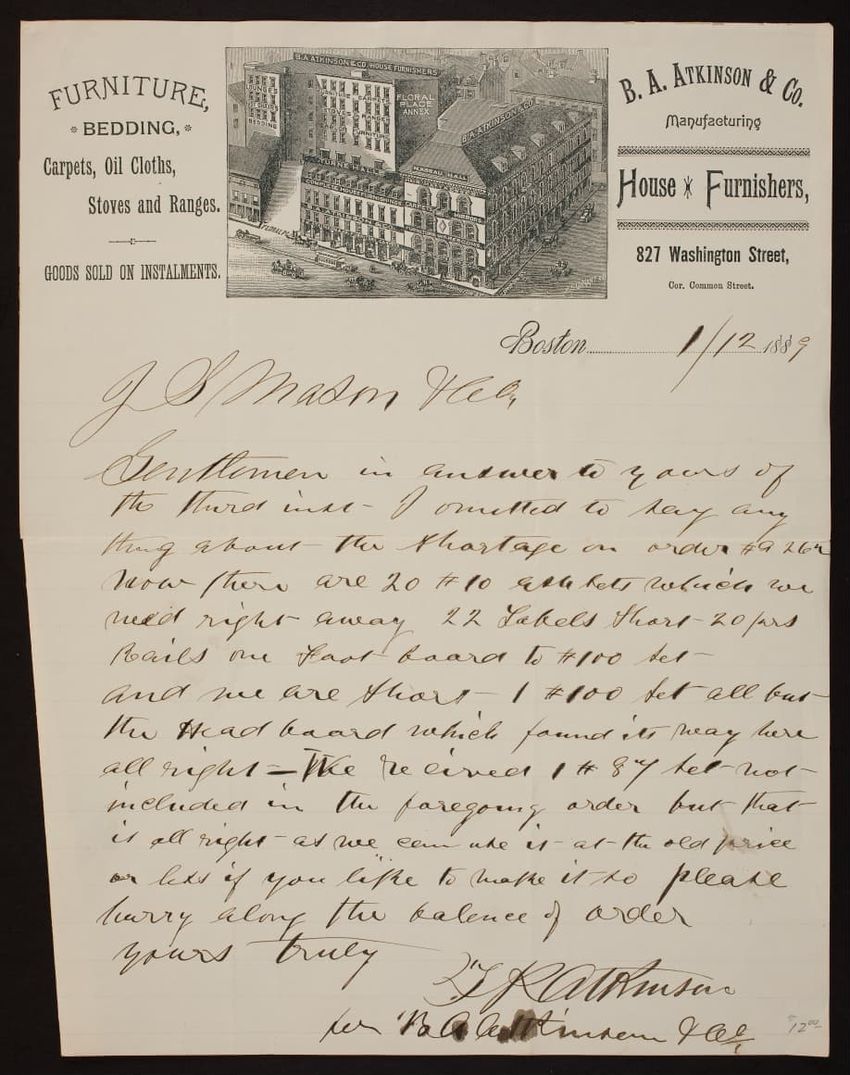 FURNITURE,
* BEDDING, *
Carpets, Oil Cloths,
Stoves and Ranges.
GOODS SOLD ON INSTALMENTS.
B. A. ATKINSON & CO. HOUSE FURNISHERS
FLORAL
PLACE
ANNEX
BEDDING
NASSAU HALL
B. A. ATKINSON & CO.
B. A. ATKINSON & Co.
Manufacturing
House Furnishers,
827 Washington Street,
Cor. Common Street.
Boston 1/12 1889
J S Mason & Co,
Gentlemen in answer to yours of
the third inst - I omitted to say any
thing about the shortage on order #9 26
Now there are 20 #10 which we
need right away 22 Labels short - 20 prs
Rails one Foot board to #100 set -
and we are short - 1 #100 set all but
the Head board which found its way here
all right - We received 1 # 87 set not
included in the foregoing order but that
is all right - as we can use it at the old price
or less if you like to make it so please
hurry along the balence of order
yours truly
Atkinson
per B A Atkinson & Co
12 00